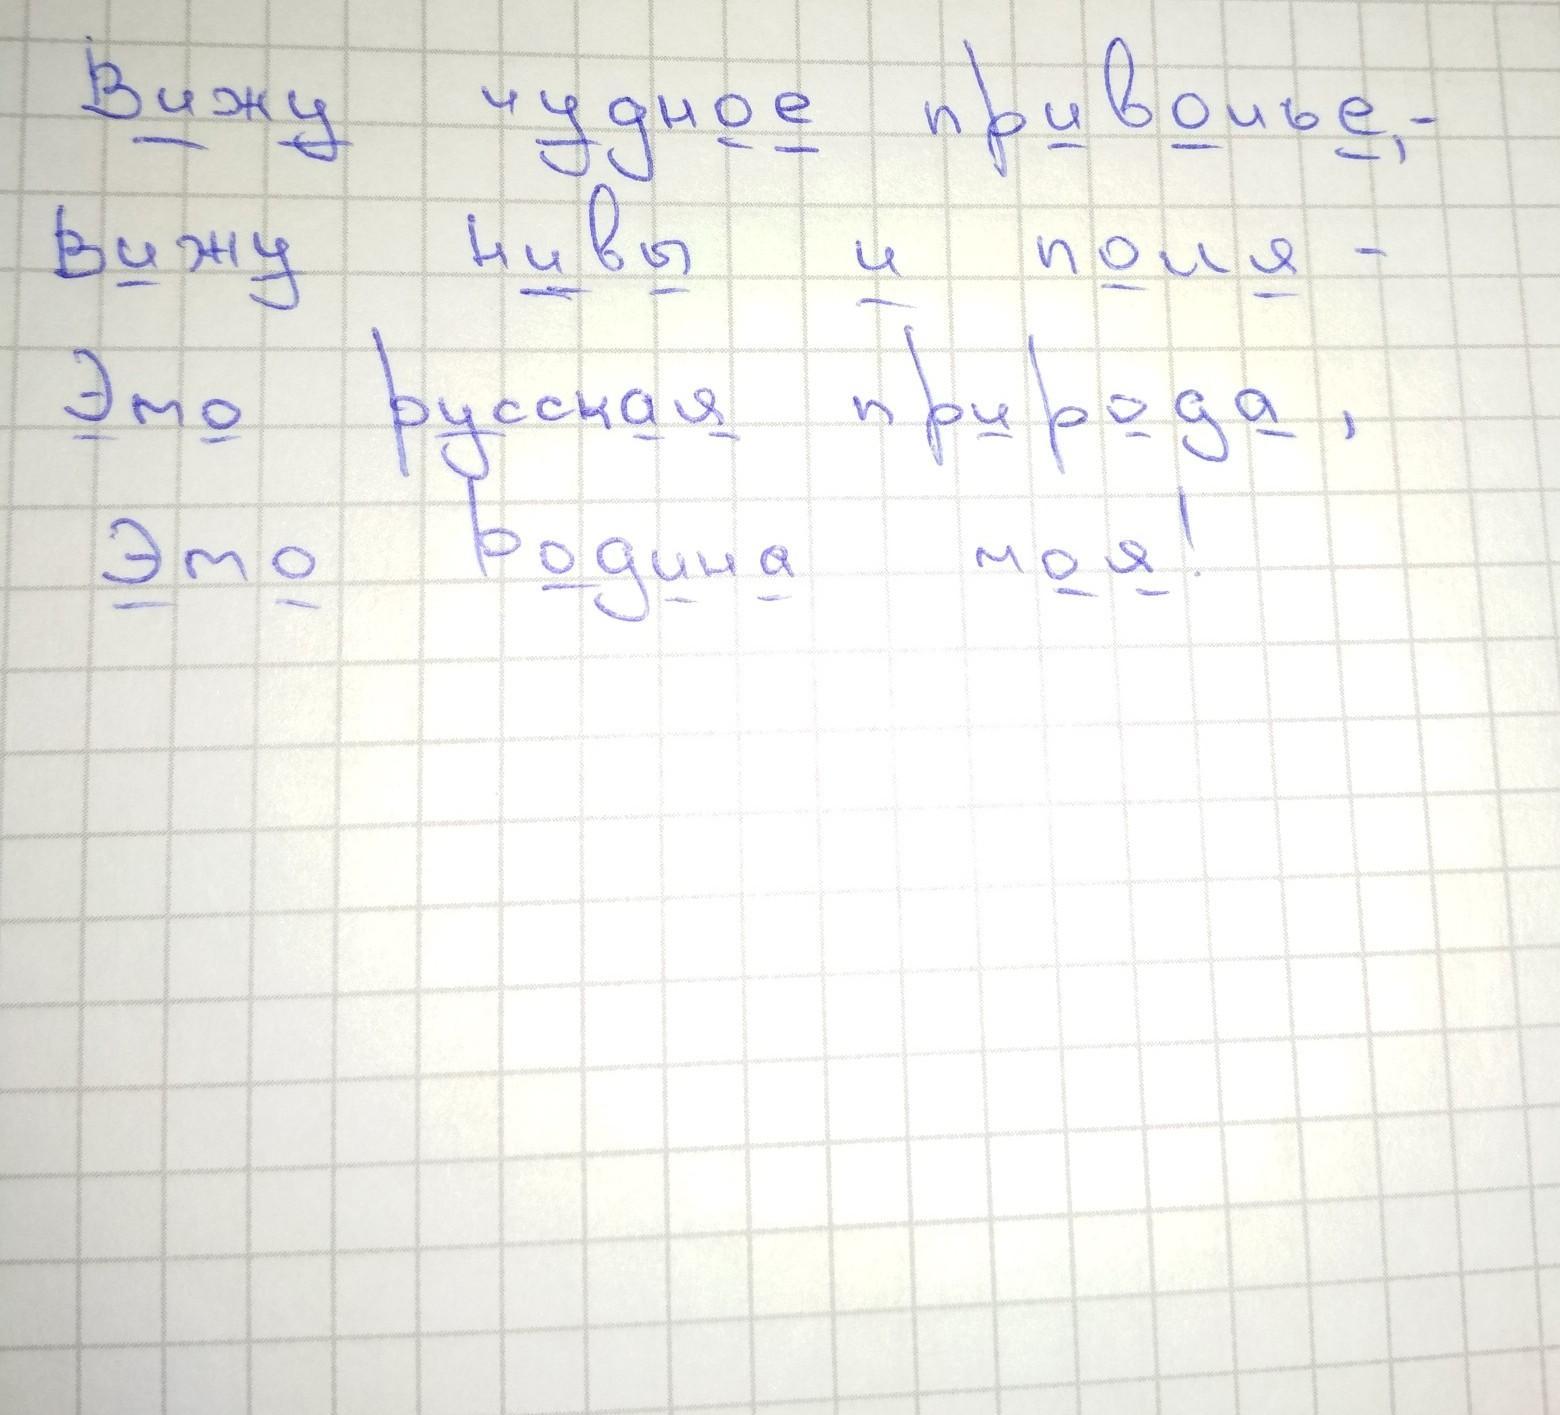 Вижу чудное приволье,-
Вижу нивы и поля -
Это русская природа,
Это Родина моя!